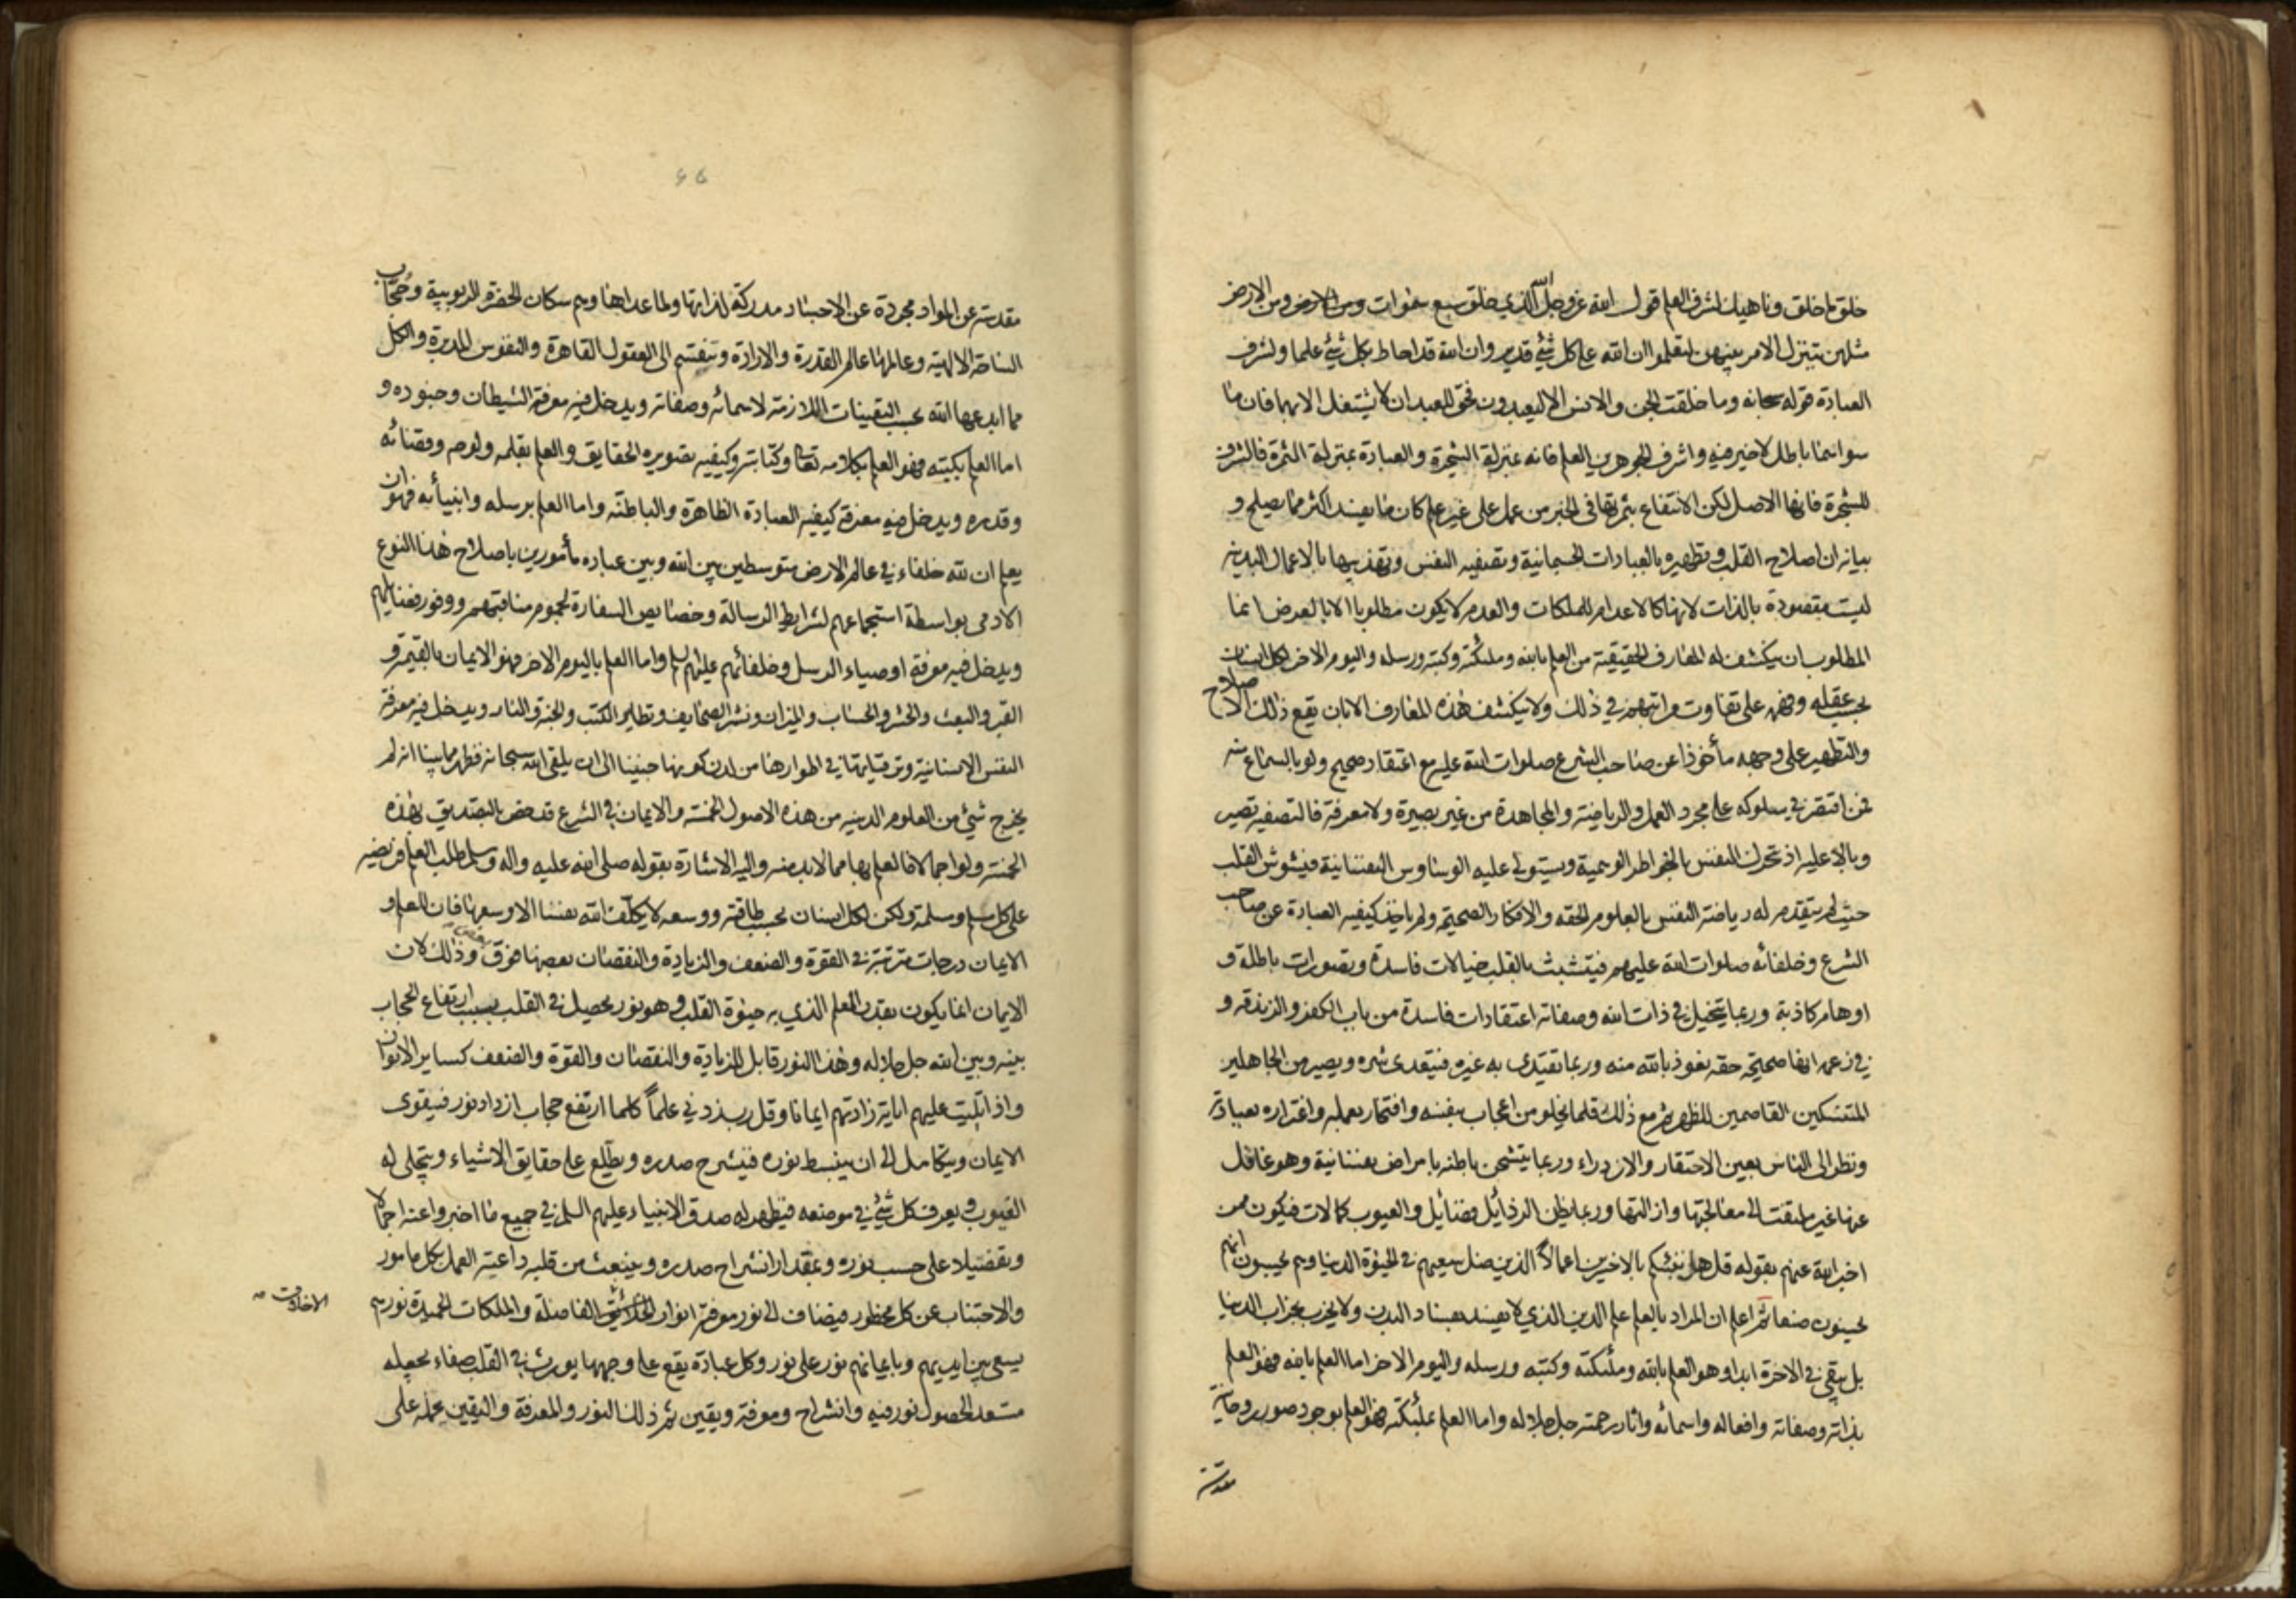 خلق ما خلق وناهيك لشرف العلم قول الله عز وجل الله الذي خلق سبع سموات ومن الارض ومن الارض
مثلهن يتنزل الامر بينهن لتعلموا ان الله على كل شئ قدير وان الله قد احاط بكل شئ علما ولشرف
العبادة قوله سبحانه وما خلقت الجن والانس الا ليعبدون فحق للعبد ان لا يشتغل الا بهما فان ما
سواهما باطل لا خير فيه واشرف الجوهرين العلم فانه بمنزلة الشجرة والعبادة بمنزلة الثمرة فالشرف
للشجرة فانها الاصل لكن الانتفاع بثمرتها في الخبر من عمل على غير علم كان ما يفسد اكثر مما يصلح و
بيانه ان اصلاح القلب وتطهيره بالعبادات الجسمانية وتصفيه النفس وتهذيبها بالاعمال البدنيه
ليست مقصودة بالذات لانها كالاعدام للملكات والعدم لا يكون مطلوبا الا بالعرض انما
المطلوب ان ينكشف له المعارف الحقيقية من العلم بالله وملئكته وكتبه ورسله واليوم الاخر لكل انسان
بحسب عقله وفهمه على تفاوت مراتبهم في ذلك ولا ينكشف هذه المعارف الا بان يقع ذلك الاصلاح
والتطهير على وجهه مأخوذا عن صاحب الشرع صلوات الله عليه مع اعتقاد صحيح ولو بالسماع منه
فمن اقتصر في سلوكه على مجرد العمل والرياضة والمجاهدة من غير بصيرة ولا معرفة فالتصفيه تصير
وبالا عليه اذ تحرك النفس بالخواطر الوهمية ويستولي عليه الوساوس النفسانية فيشوش القلب
حيث لم يتقدم له رياضة النفس بالعلوم الحقه والافكار الصحيحة ولم ياخذ كيفيه العبادة عن صاحب
الشرع وخلفائه صلوات الله عليهم فيتشبث بالقلب خيالات فاسدة وتصورات باطلة و
اوهام كاذبة وربما يتخيل في ذات الله وصفاته اعتقادات فاسدة من باب الكفر والزندقه و
في زعمه انها صحيحة حقه نعوذ بالله منه وربما تقتدى به غيره فيتعدى شره ويصير من الجاهلين
المتنسكين القاصمين للظهر ثم مع ذلك قلما يخلو من اعجاب بنفسه وافتخار بعمله واغتراره بعبادته
ونظر الى الناس بعين الاحتقار والازدراء وربما يتشحن باطنه بامراض نفسانية وهو غافل
عنها غير ملتفت الى معالجتها وازالتها وربما يظن الرذائل فضائل والعيوب كمالات فيكون ممن
اخبر الله عنهم بقوله قل هل ننبئكم بالاخسرين اعمالا الذين ضل سعيهم في الحيوة الدنيا وهم يحسبون انهم
يحسنون صنعا ثم اعلم ان المراد بالعلم علم الدين الذي لا يفسد بفساد البدن ولا يخرب بخراب الدنيا
بل يبقى في الاخرة ابدا وهو العلم بالله وملئكته وكتبه ورسله واليوم الاخر اما العلم بالله فهو العلم
بذاته وصفاته وافعاله واسمائه واثار رحمته جل جلاله واما العلم بملئكته فهو العلم بوجود صور روحانية
مقدسة
مقدسة عن المواد مجردة عن الاجساد مدركة لذاتها ولما عداها وهم سكان الحضرة الربوبية وحجاب
الساحة الالهية وعالمها عالم القدرة والارادة وتنقسم الى العقول القاهرة والنفوس المدبرة والكل
مما ابدعها الله بحسب التعينات اللازمة لاسمائه وصفاته ويدخل فيه معرفة الشيطان وجنوده و
اما العلم بكتبه فهو العلم بكلامه تعالى وكتابته وكيفيه تصويره الحقايق والعلم بقلمه ولوحه وقضائه
وقدره ويدخل فيه معرفة كيفيه العبادة الظاهرة والباطنة واما العلم برسله وانبيائه فهو ان
يعلم ان لله خلفاء في عالم الارض متوسطين بين الله وبين عباده مأمورين باصلاح هذا النوع
الادمى بواسطة استجماعهم لشرايط الرسالة وخصايص السفارة لجموم مناقبهم ووفور فضايلهم
ويدخل فيه معرفة اوصياء الرسل وخلفائهم عليهم السلم واما العلم باليوم الاخر فهو الايمان بالقيمة و
القبر والبعث والحشر والحساب والميزان ونشر الصحايف وتطاير الكتب والجنة والنار ويدخل فيه معرفة
النفس الانسانية وترقياتها في اطوارها من لدن كونها جنينا الى ان يلقى الله سبحانه فظهر مما بينا انه لم
يخرج شئ من العلوم الدينيه من هذه الاصول الخمسة والايمان في الشرع قد خص بالتصديق بهذه
الخمسة ولو اجمالا فالعلم بها مما لابد منه واليه الاشارة بقوله صلى الله عليه واله وسلم طلب العلم فريضه
على كل مسلم ومسلمة ولكن لكل انسان بحسب طاقته ووسعه لا يكلف الله نفسا الا وسعها فان للعلم و
الايمان درجات مترتبة في القوة والضعف والزيادة والنقصان بعضها فوق بعض وذلك لان
الايمان انما يكون بقدر العلم الذي به حيوة القلب وهو نور يحصل في القلب بسبب ارتفاع الحجاب
بينه وبين الله جل جلاله وهذا النور قابل للزيادة والنقصان والقوة والضعف كساير الانوار
واذا تليت عليهم اياته زادتهم ايمانا وقل رب زدني علماً كلما ارتفع حجاب ازداد نور فيقوى
الايمان ويتكامل الى ان ينبسط نوره فينشرح صدره ويطلع على حقايق الاشياء ويتجلى له
الغيوب ويعرف كل شئ في موضعه فيظهر له صدق الانبياء عليهم السلم في جميع ما اخبروا عنه اجمالا
وتفصيلا على حسب نوره وبمقدار انشراح صدره وينبعث من قلبه داعية العمل بكل مامور
والاجتناب عن كل محظور فيضاف الى نور معرفة انوار الخلائق الفاضلة والملكات الحميدة نورهم
الاخلاق
يسعى بين ايديهم وبايمانهم نور على نور وكل عبادة يقع على وجهها يورث في القلب صفاء يجعله
مستعد الحصول نور فيه وانشراح ومعرفة ويقين ثم ذلك النور والمعرفة واليقين يحمله على